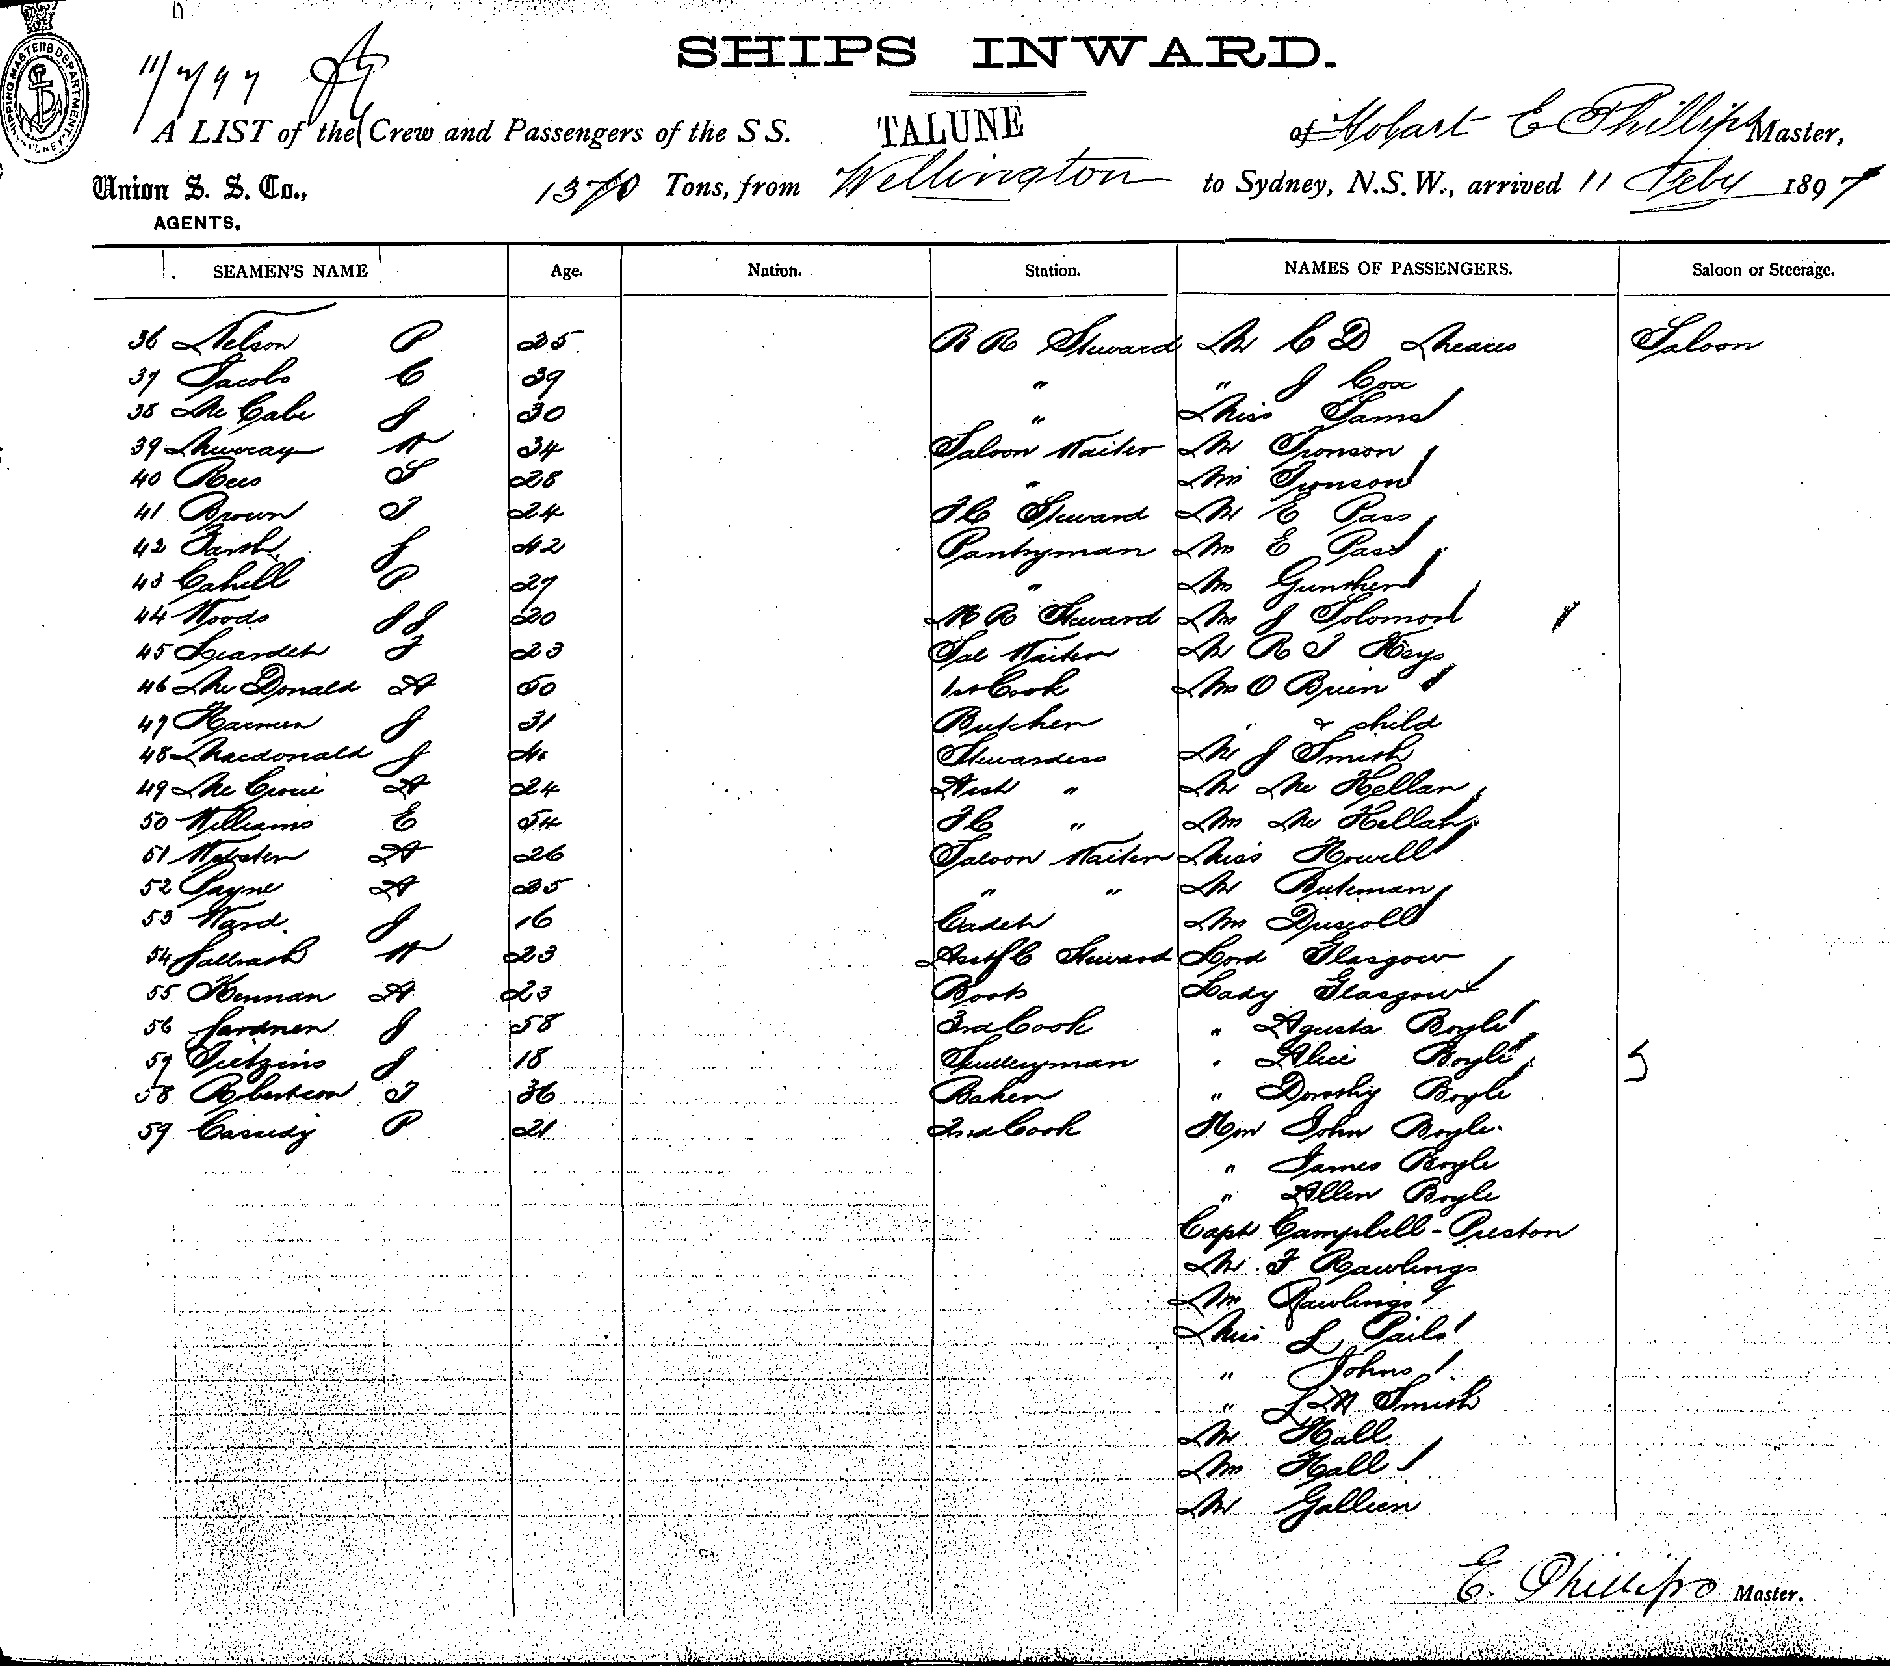 SHIPS INWARD.
11/2/97
A LIST of the Crew and Passengers of the S S. TALUNE of Hobart E Phillips Master,
Union S. S. Co., Tons, from Wellington to Sydney, N.S.W., arrived 11 Feby 1897
AGENTS.
SEAMEN'S NAME Age. Nation. Station. NAMES OF PASSENGERS. Saloon or Steerage.
36 Nelson P 35 R R Steward Mr C D Meares Saloon
37 Jacobs C 39 " " J Cox
38 Mc Cabe J 30 " Miss Sams
39 Murray W 34 Saloon Waiter Mr Ironson
40 Rees S 28 " Mrs Ironson
41 Brown T 24 F C Steward Mr E Pass
42 J 42 Pantryman Mrs E Pass
43 Cahill P 27 " Mrs Gunther
44 Woods J J 20 R Steward Mrs J Solomon
45 Liardet F 23 Sal Waiter Mr R T Keys
46 Mc Donald A 50 1st Cook Mrs O Brien
47 Harmen J 31 Butcher " & child
48 Macdonald J Stewardess Mr J Smith
49 Mc A 24 Asst " Mr Mc Kellar
50 Williams E 54 F C " Mrs Mc Kellar
51 Webster A 26 Saloon Waiter Miss Howell
52 Payne A 35 " " Mr Bateman
53 Ward J 16 Cadet Mrs Driscoll
54 W 23 Asst F C Steward Lord Glasgow
55 Kennan A 23 Boots Lady Glasgow
56 Gardner J 58 3rd Cook " Agusta Boyle
57 J 18 Sculleryman " Alice Boyle
58 Robertson T 36 Baker " Dorothy Boyle
59 Cassidy P 21 2nd Cook Hon John Boyle
" James Boyle
" Allen Boyle
Capt Campbell-Preston
Mr F Rawlings
Mrs Rawlings
Miss L
" Johns
" L M Smith
Mr Hall
Mrs Hall
Mr Gallien
E. Phillips Master.